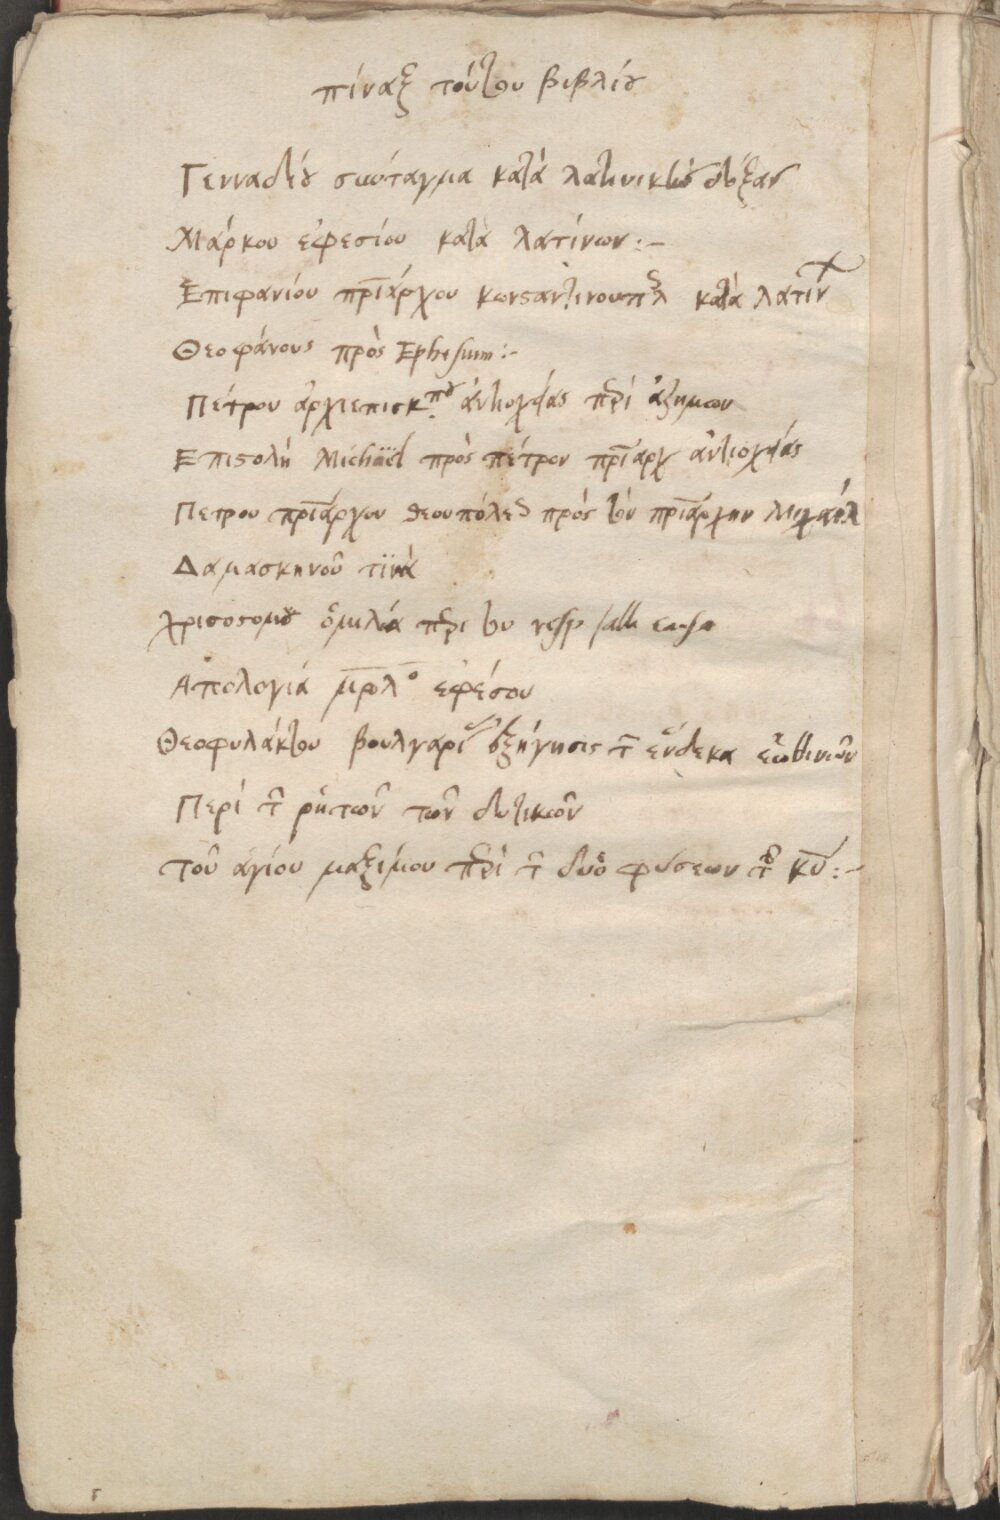 πίναξ τούτου βιβλίου
Γενναδίου σύνταγμα κατὰ λατινικῆς δόξας
Μάρκου ἐφεσίου κατὰ λατίνων :–
Ἐπιφανίου πριάρχου κωνσαντινουπλ κατὰ λατίν
Θεοφάνους πρὸς Ephesium :–
Πέτρου ἀρχιεπισκπου ἀντιοχείας πρὶ ἀζημων
Επιστολὴ Michaël πρὸς πέτρον πριαρχ ἀντιοχείας
Πετρου πριάρχου θεουπόλεως πρὸς τὸν πριάρχην Μιχαήλ
Δαμασκηνοῦ τϊνὰ
χρισοστομου ὁμιλία πρι του
Απολογιά μρολο ἐφέσου
Θεοφυλάκτου βουλγαρί ἐξήγησις τ ἕνδεκα ἑωθινῶν
Περί τ ῥητῶν τῶν δυτικῶν
τοῦ ἁγίου μαξίμου πρὶ τ δυὸ φύσεων τ κυ :–